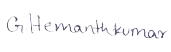 G Hemanthkumar